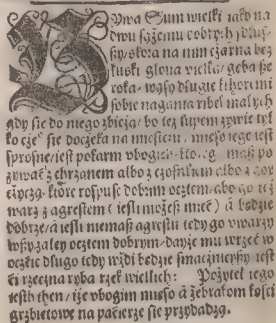 BYwa Sum wielki iako na
dwu sążeniu dobrych y dłuż
szy, skóra na nim czarna bez
łuski, głowa wielka, gęba sze
roka, wąsy długie któremi
sobie nagania ribek małych
gdy się do niego zbieżą, bo też łupem żywie tył
ko eże się doczeka na mieścu, mięso iego iest
sprosne iest pokarm vbogich maß po
żywać z chrzanem albo z czosnkiem albo z gor
czycą, które rospuść dobrim octem, abo go też
warz z agrestem (iesli możeß mieć) á będzie
dobrze, á iesli niemaß agrestu tedy go vwarzy
wßy zaley octem dobrym, dayże mu wrzeć w
occie długo tedy wżdi będzie smacznieyßy iest
ći rzeczna ryba rzek wielkich: Pożytek iego
iesth then, iże vbogim mięso á żebrakom kości
grzbietowe na pacierze sie przydadzą.